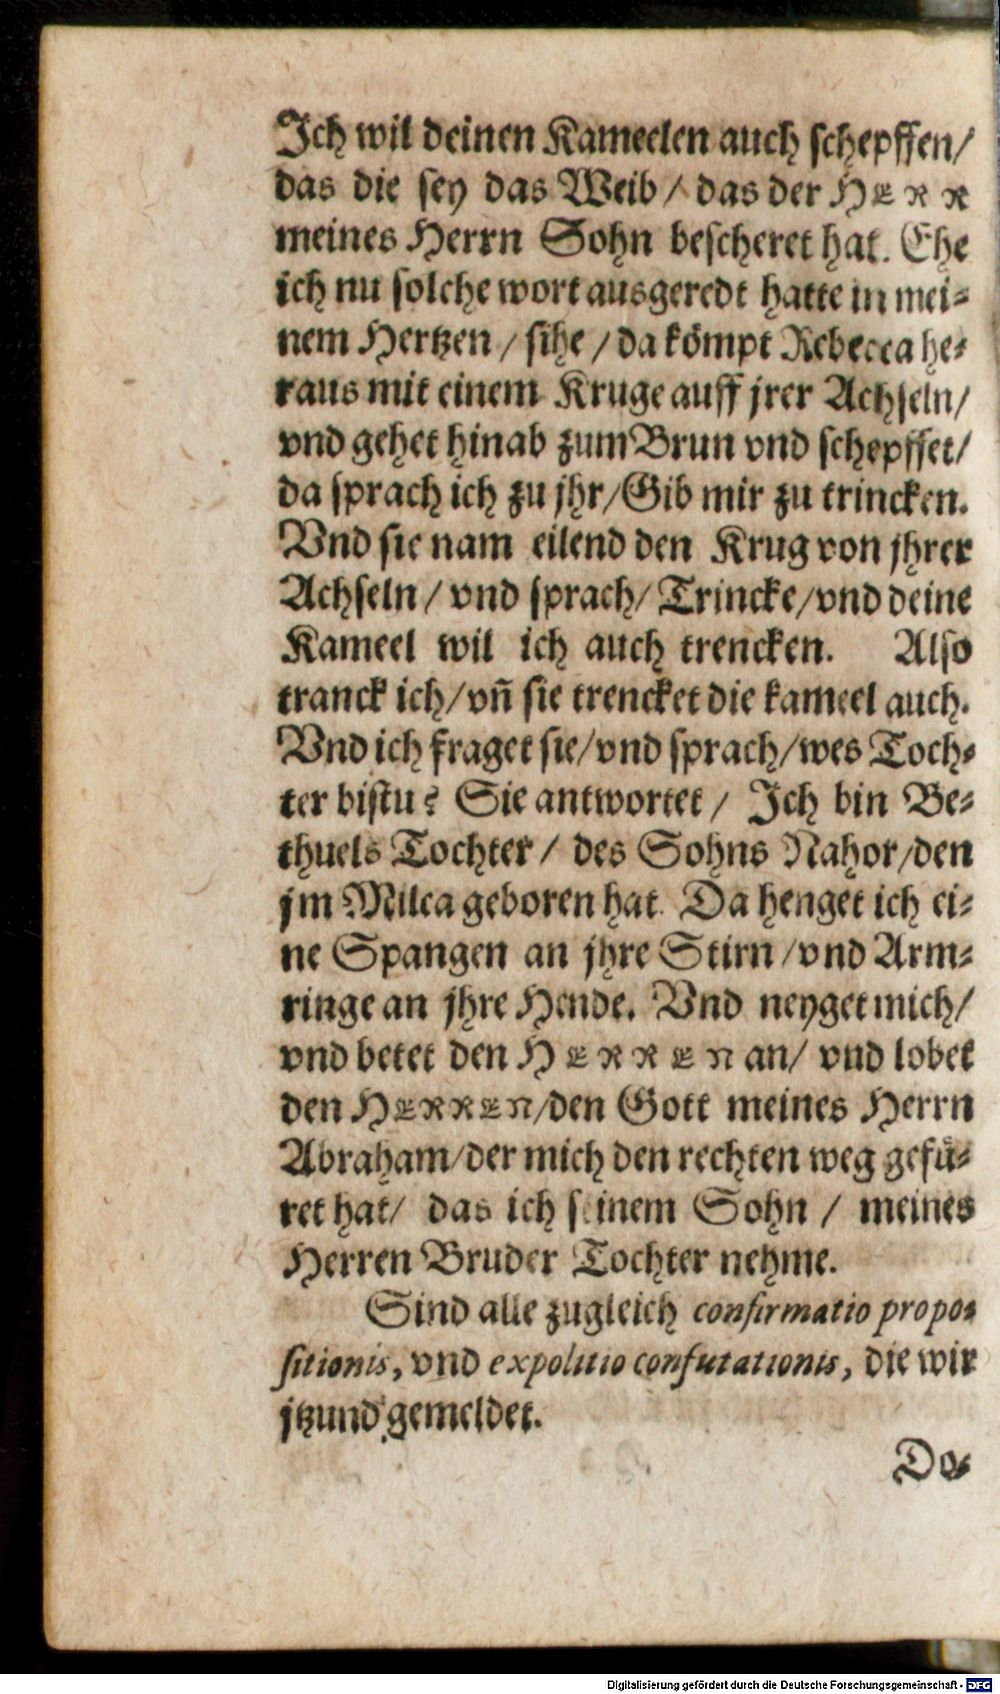 Ich wil deinen Kameelen auch schepffen/
das die sey das Weib / das der HERR
meines Herrn Sohn bescheret hat. Ehe
ich nu solche wort ausgeredt hatte in mei-
nem Hertzen / sihe / da kömpt Rebecca he-
raus mit einem Kruge auff jrer Achseln/
vnd gehet hinab zum Brun vnd schepffet/
da sprach ich zu jhr/Gib mir zu trincken.
Vnd sie nam eilend den Krug von jhrer
Achseln / vnd sprach/ Trincke/vnd deine
Kameel wil ich auch trencken. Also
tranck ich/vñ sie trencket die kameel auch.
Vnd ich fraget sie/vnd sprach/wes Toch-
ter bistu? Sie antwortet / Ich bin Be-
thuels Tochter / des Sohns Nahor/den
jm Milca geboren hat. Da henget ich ei-
ne Spangen an jhre Stirn /vnd Arm-
ringe an jhre Hende. Vnd neyget mich/
vnd betet den HERREN an/ vnd lobet
den HERREN/den Gott meines Herrn
Abraham/der mich den rechten weg gefü-
ret hat/ das ich seinem Sohn / meines
Herren Bruder Tochter nehme.
Sind alle zugleich confirmatio propo-
sitionis, vnd expolitio confutationis, die wir
jtzund gemeldet.
Do-
Digitalisierung gefördert durch die Deutsche Forschungsgemeinschaft - DFG